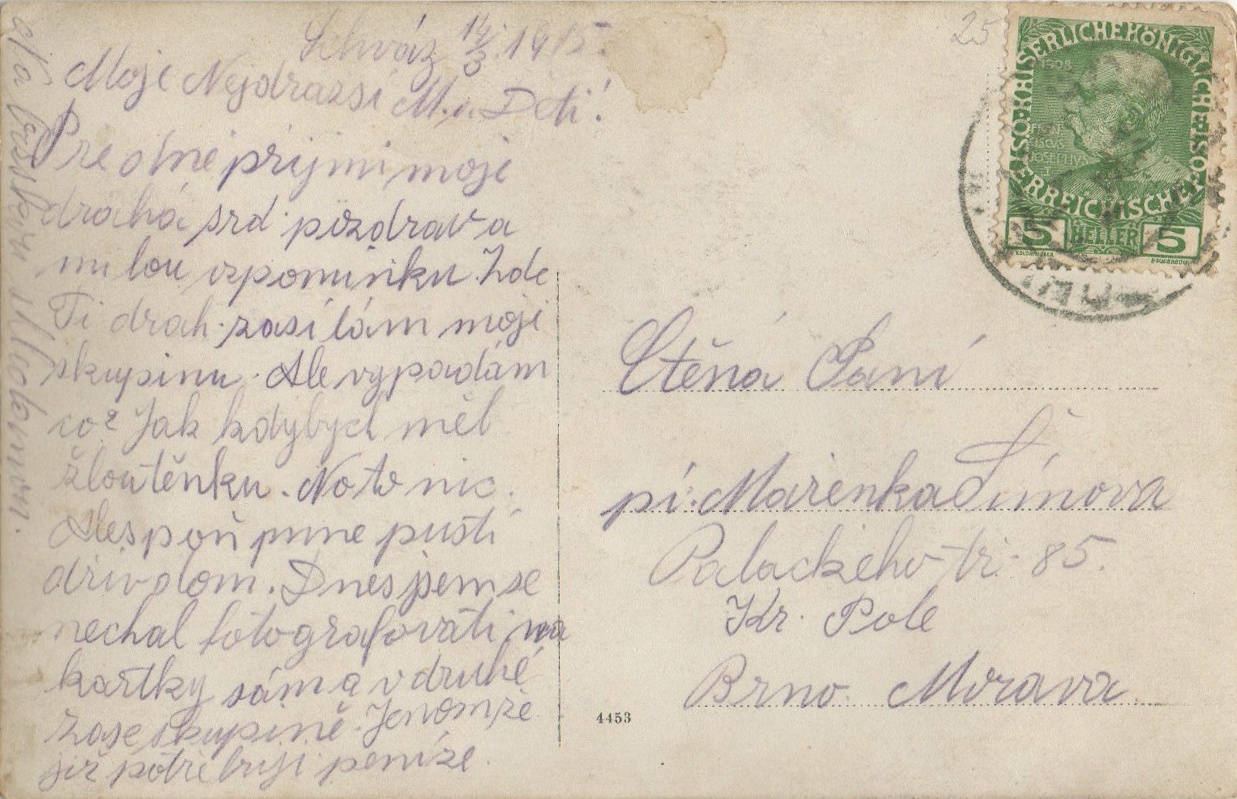 Schváz 14/3. 1915.
Moje Nejdrazsí M. a Deti!
Pre olne prijmi moje
drahá srd pozdrav a
milou vzpomínku. Zde
Ti drah. zasílám moji
skupinu. Ale vypadám
co? Jak kdybych měl
žloutěnku. No to nic.
Alespoň mne pustí
driv dom. Dnes jsem se
nechal fotografovati na
kartky sám a v druhé
zase skupině. Jenomže
již potřebuji peníze
25
KAISERLICHE KÖNIGLICHE ÖSTERREICHISCHE POST
1908
5 HELLER 5
Ctěná Paní
pí. Marenka Šímova
Palackeho tř. 85.
Kr. Pole
Brno. Morava.
4453